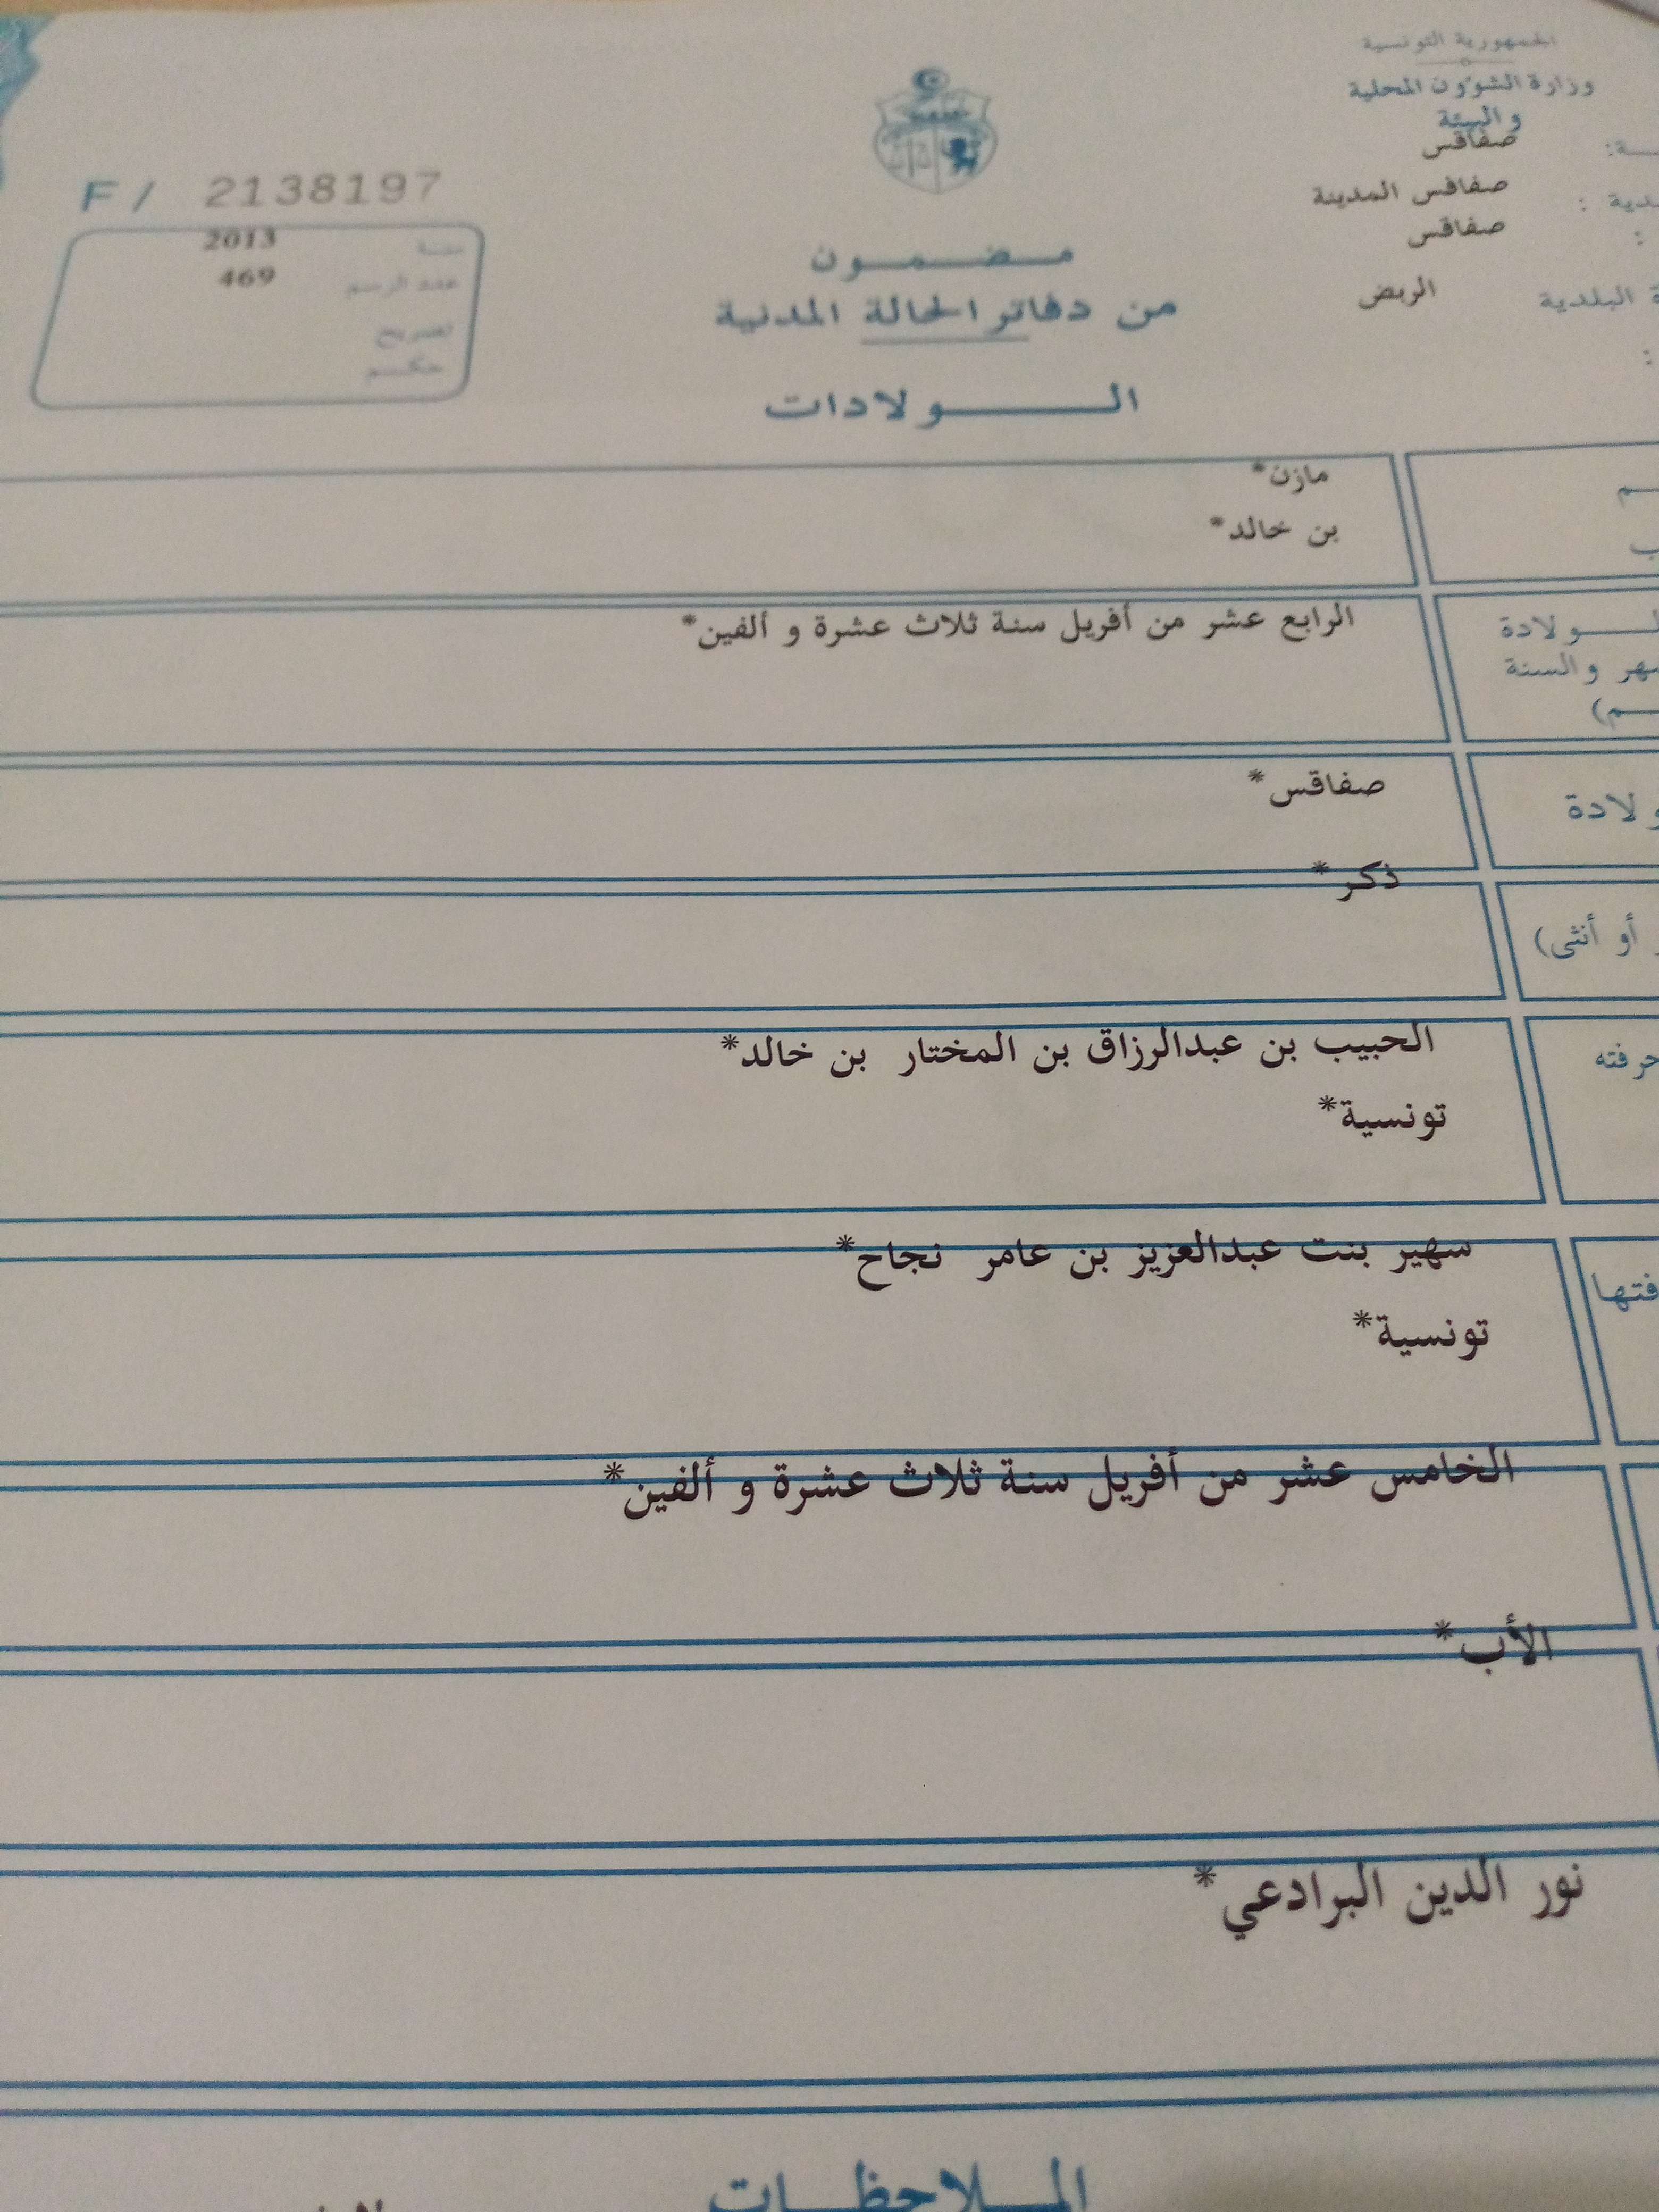 الجمهورية التونسية
وزارة الشؤون المحلية
والبيئة
صفاقس
صفاقس المدينة
صفاقس
البلدية الربض
F / 2138197
سنة 2013
عدد الرسم 469
تصريح
حكم
مضمون
من دفاتر الحالة المدنية
الولادات
مازن*
بن خالد*
الرابع عشر من أفريل سنة ثلاث عشرة و ألفين*
والسنة
صفاقس*
ذكر*
أو أنثى)
الحبيب بن عبدالرزاق بن المختار بن خالد*
حرفته
تونسية*
سهير بنت عبدالعزيز بن عامر نجاح*
تونسية*
الخامس عشر من أفريل سنة ثلاث عشرة و ألفين*
الأب*
نور الدين البرادعي*
الملاحظات